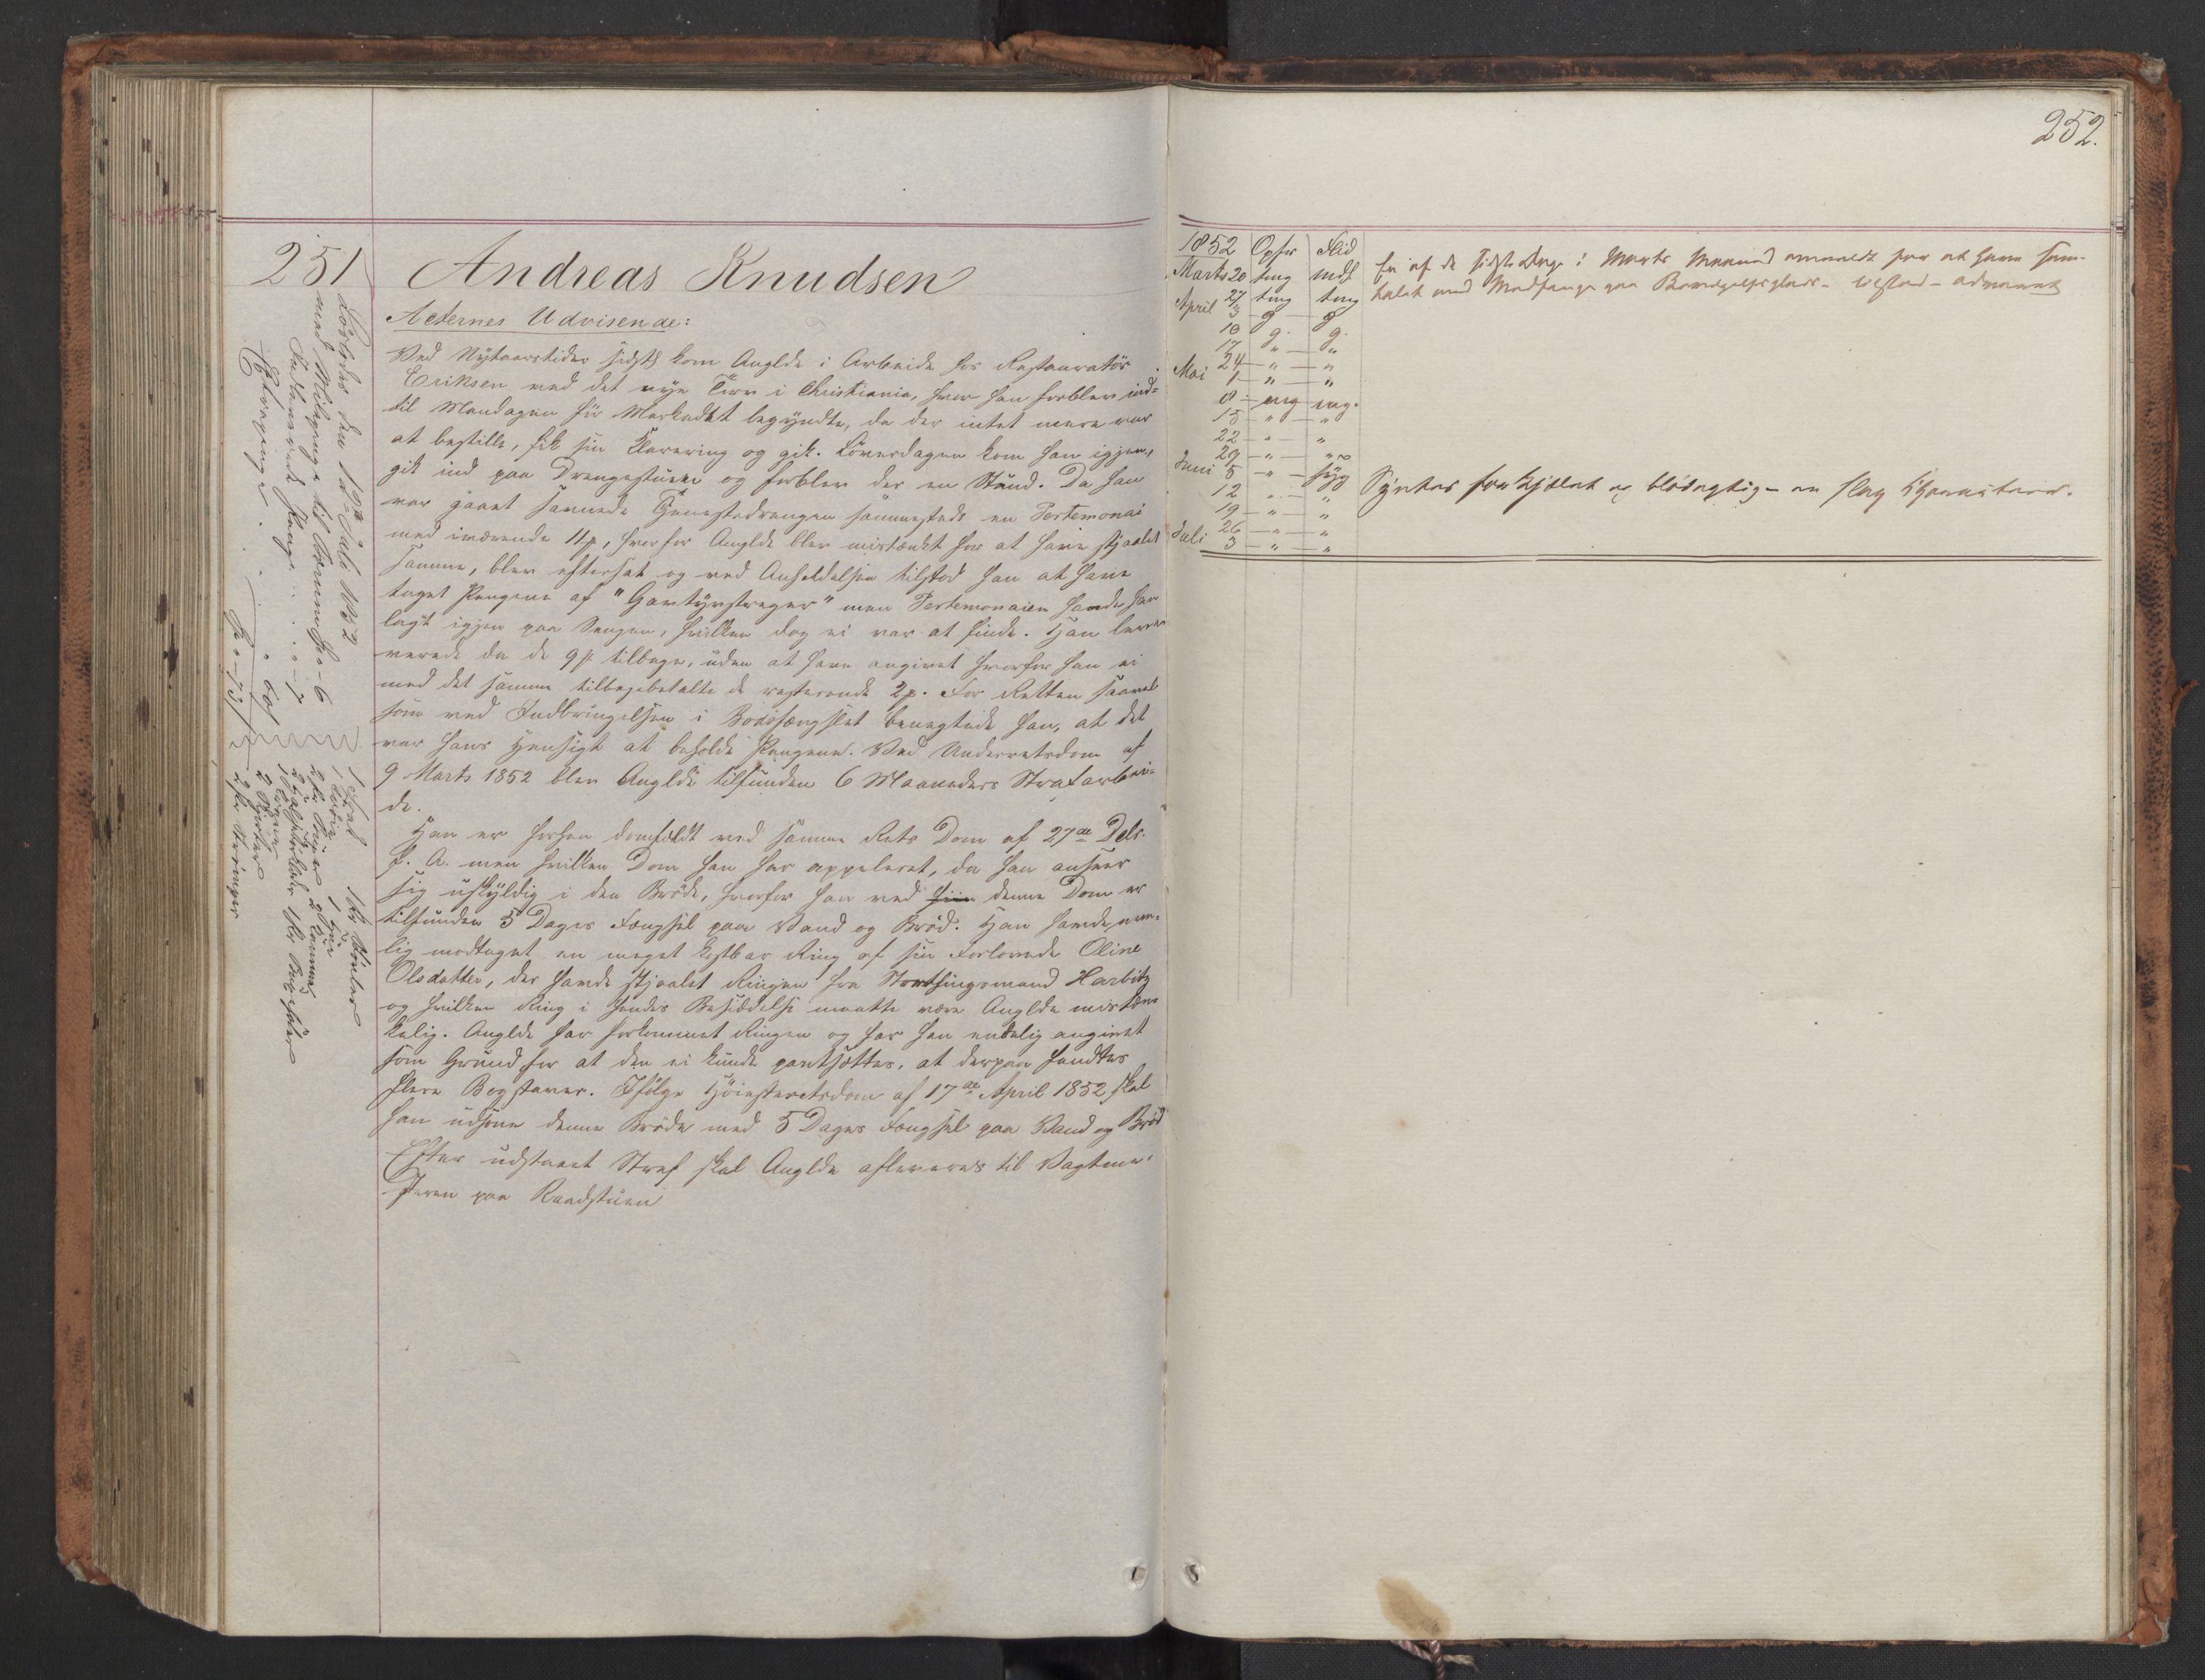 251
Andreas Knudsen
Acternes Udvisende:
Ved Nytaarstider sidst kom Anglde i Arbeide hos Restauratör
Eriksen ved det nye Torv i Christiania, hvor han forblev ind-
til Mandagen för Markedet begyndte, da der intet mere var
at bestille, fik sin Klarering og gik. Löverdagen kom han igjen,
gik ind paa Drengestuen og forblev der en Stund. Da han
var gaaet savnede Tjenestedrengen sammesteds en Portemonai
med iværende 11 β, hvorfor Anglde blev mistænkt for at have stjaalet
samme, blev eftersat og ved Anholdelsen tilstod han at have
taget Pengene af "Gavtyvstreger" men Portemonaien havde han
lagt igjen paa Sengen, hvilken dog ei var at finde. Han leve-
verede da de 9 β tilbage, uden at have angivet hvorfor han ei
med det samme tilbagebetalte de resterende 2 β. For Retten saavel
som ved Indbringelsen i Bodsfængslet benegtede han, at det
var hans Hensigt at beholde Pengene. Ved Underretsdom af
9 Marts 1852 blev Anglde tilfunden 6 Maaneders Strafarbei-
de.
Han er forhen domfældt ved samme Rets Dom af 27de Dcbr.
f. A. men hvilken Dom han har appeleret, da han anseer
sig uskyldig i den Bröde, hvorfor han ved denne Dom er
tilfunden 5 Dages Fængsel paa Vand og Bröd. Han havde nem-
lig modtaget en meget kostbar Ring af sin Forlovede Oline
Olsdatter, der havde stjaalet Ringen fra Storthingsmand Harbitz
og hvilken Ring i hendes Besiddelse maatte være Anglde mistæn-
kelig. Anglde har forkommet Ringen og har han endelig angivet
som Grund for at den ei kunde pantsættes, at derpaa fandtes
flere Bogstaver. Ifölge Höiesteretsdom af 17de April 1852 skal
han udsone denne Bröde med 5 Dages Fængsel paa Vand og Bröd
Efter udstaaet Straf skal Anglde afleveres til Vagtme-
steren paa Raadstuen
Löslodes den Juli 1852
med
1 Kr Stövler
1 Hue
2 Skjorter
252.
1852 Opfør Flid
Marts 20 tmg mdl En af de sidste Dage i Marts Maaned anmeldt for at have sam-
27 tmg tmg talet med Medfange paa Bevægelsesplads - tilstod - advaret
April 3 g g
10 g. g.
17 " — "
24 " — "
Mai 1 " — "
8 — mg mg.
15 " "
22 — " — "
29 — " — "
Juni 5 — " — syg
12 " — "
19 — " — "
26 — " — "
Juli 3 — " — "